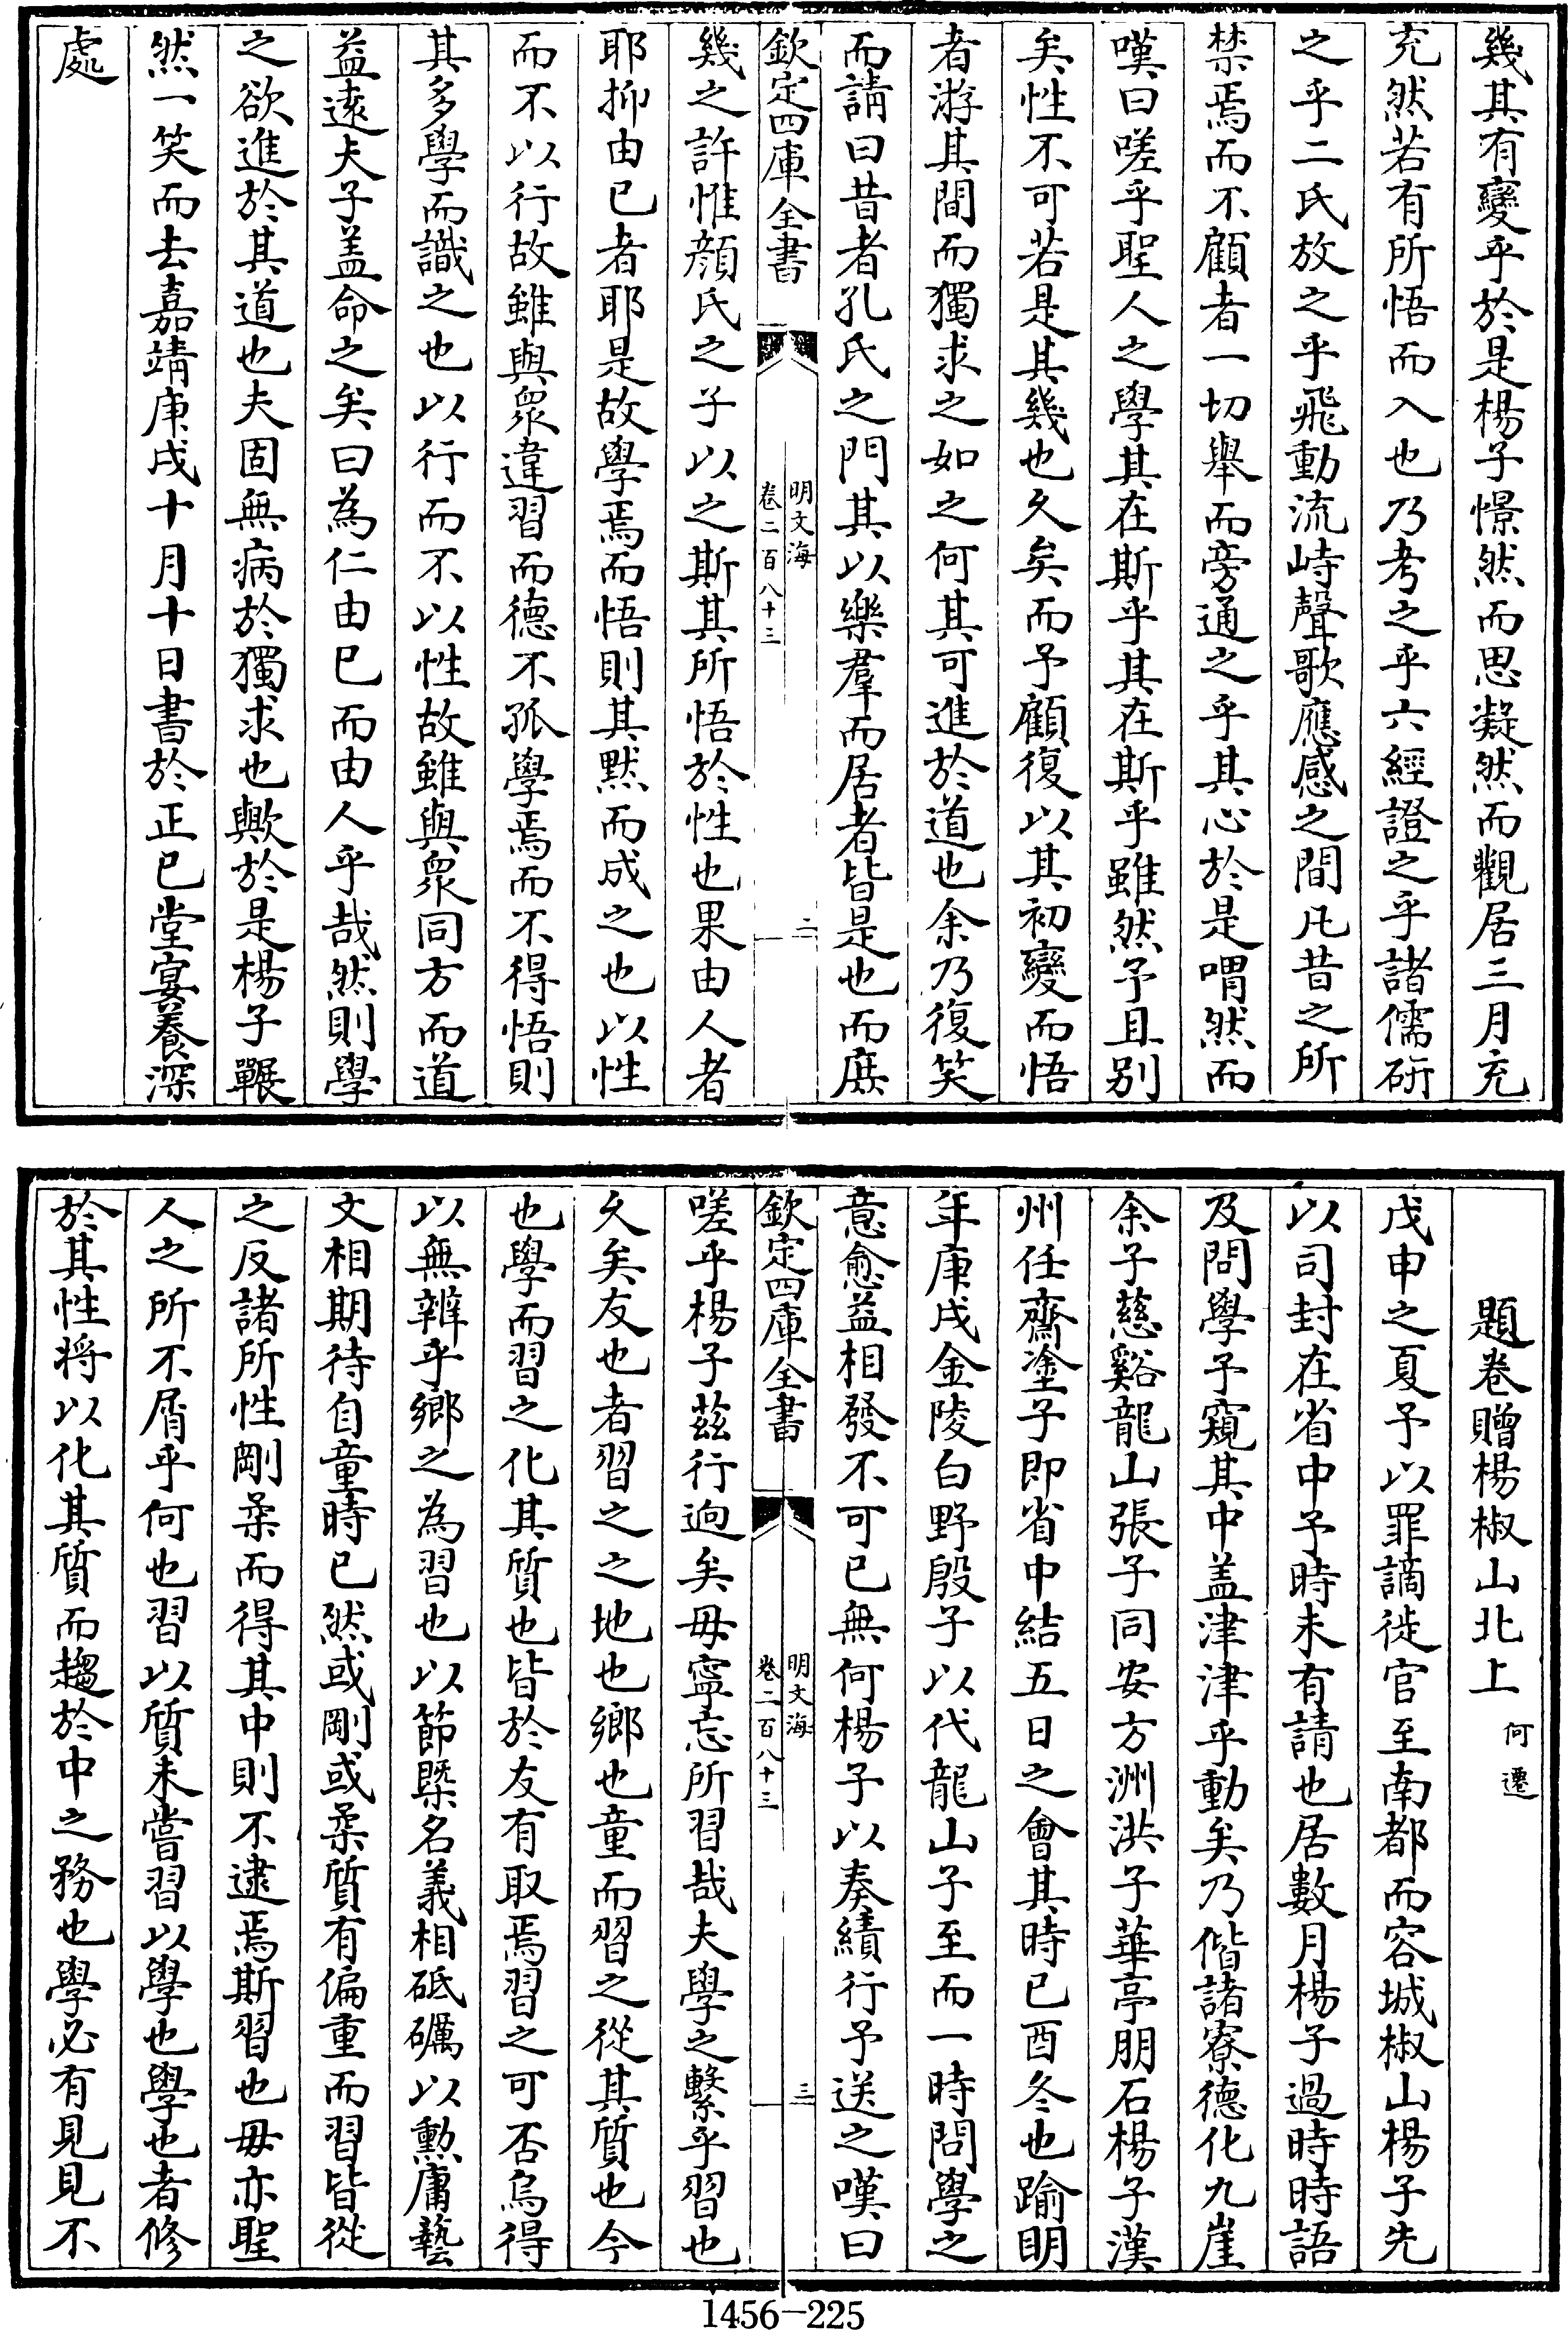 幾其有變乎於是楊子憬然而思凝然而觀居三月充
充然若有所悟而入也乃考之乎六經證之乎諸儒研
之乎二氏放之乎飛動流峙聲歌應感之間凡昔之所
禁焉而不顧者一切舉而旁通之乎其心於是喟然而
嘆曰嗟乎聖人之學其在斯乎其在斯乎雖然予且别
矣性不可若是其幾也久矣而予顧復以其初變而悟
者游其間而獨求之如之何其可進於道也余乃復笑
而請曰昔者孔氏之門其以樂羣而居者皆是也而庶
欽定四庫全書
明文海
卷二百八十三
二
幾之許惟顔氏之子以之斯其所悟於性也果由人者
耶抑由已者耶是故學焉而悟則其黙而成之也以性
而不以行故雖與衆違習而德不孤學焉而不得悟則
其多學而識之也以行而不以性故雖與衆同方而道
益遠夫子盖命之矣曰為仁由已而由人乎哉然則學
之欲進於其道也夫固無病於獨求也歟於是楊子囅
然一笑而去嘉靖庚戌十月十日書於正已堂宴養深
處
題卷贈楊椒山北上
何遷
戊申之夏予以罪謫徙官至南都而容城椒山楊子先
以司封在省中予時未有請也居數月楊子過時時語
及問學予窺其中盖津津乎動矣乃偕諸寮德化九崖
余子慈谿龍山張子同安方洲洪子華亭朋石楊子漢
州任齋塗子即省中結五日之會其時已酉冬也踰明
年庚戌金陵白野殷子以代龍山子至而一時問學之
意愈益相發不可已無何楊子以奏績行予送之嘆曰
欽定四庫全書
明文海
卷二百八十三
三
嗟乎楊子兹行逈矣毋寧忘所習哉夫學之繫乎習也
久矣友也者習之之地也鄉也童而習之從其質也今
也學而習之化其質也皆於友有取焉習之可否烏得
以無辨乎鄉之為習也以節槩名義相砥礪以勲庸藝
文相期待自童時已然或剛或柔質有偏重而習皆從
之反諸所性剛柔而得其中則不逮焉斯習也毋亦聖
人之所不屑乎何也習以質未嘗習以學也學也者修
於其性将以化其質而趨於中之務也學必有見見不
1456—225